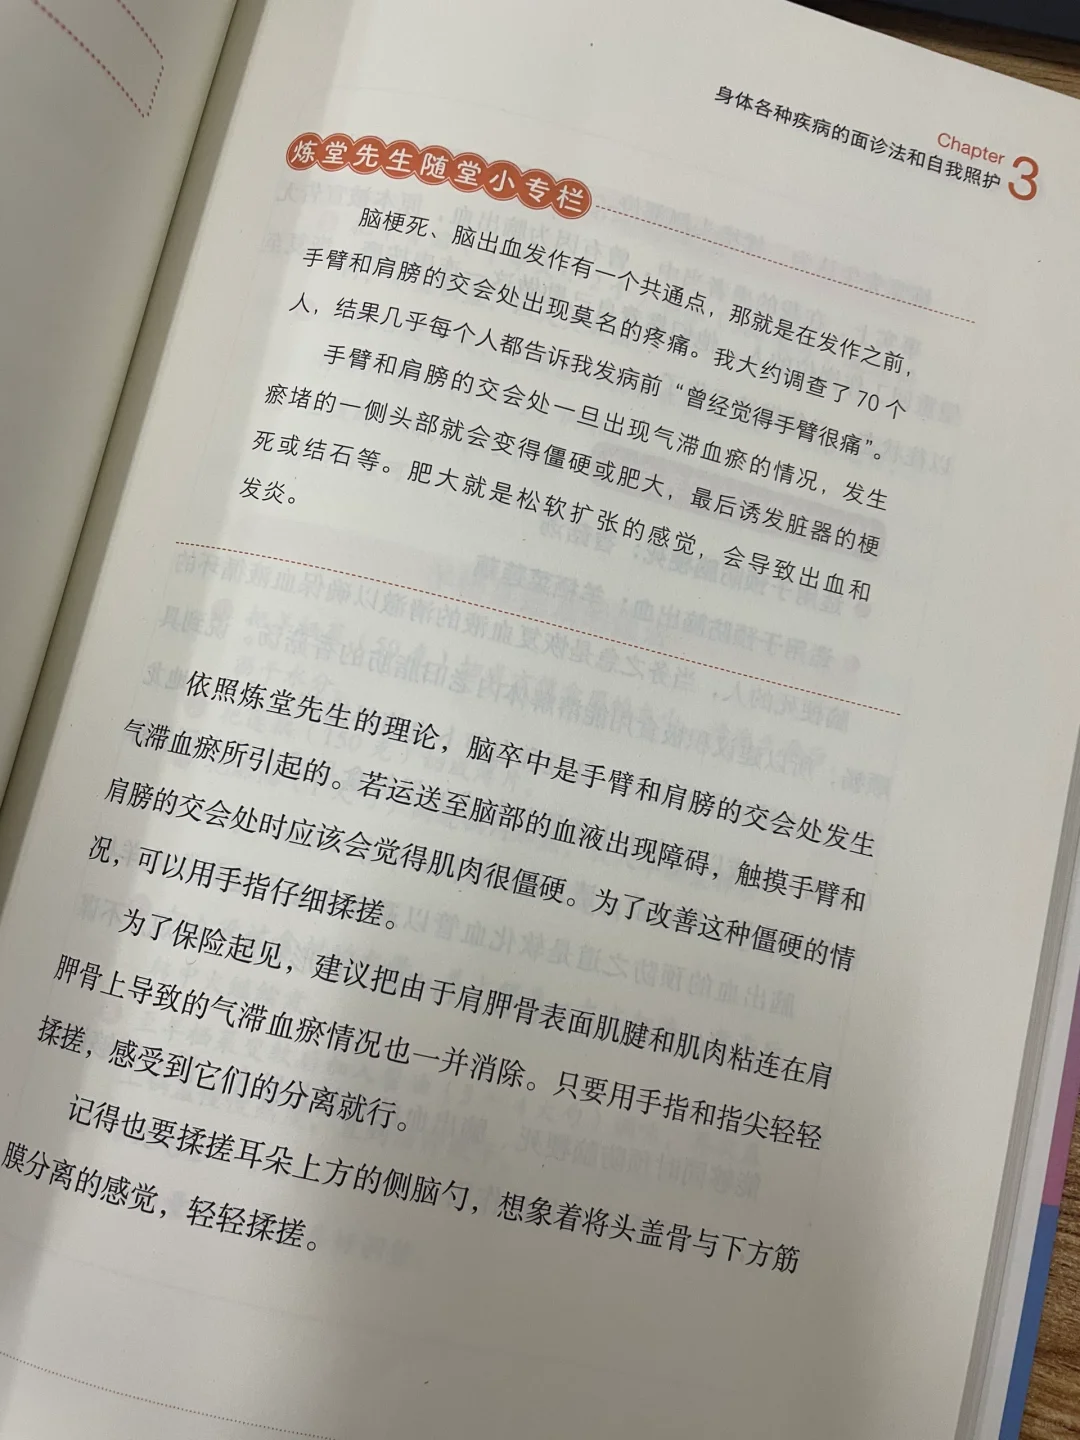 身体各种疾病的面诊法和自我照护
Chapter 3
炼堂先生随堂小专栏
脑梗死、脑出血发作有一个共通点，那就是在发作之前，
手臂和肩膀的交会处出现莫名的疼痛。我大约调查了70个
人，结果几乎每个人都告诉我发病前“曾经觉得手臂很痛”。
手臂和肩膀的交会处一旦出现气滞血瘀的情况，发生
瘀堵的一侧头部就会变得僵硬或肥大，最后诱发脏器的梗
死或结石等。肥大就是松软扩张的感觉，会导致出血和
发炎。
依照炼堂先生的理论，脑卒中是手臂和肩膀的交会处发生
气滞血瘀所引起的。若运送至脑部的血液出现障碍，触摸手臂和
肩膀的交会处时应该会觉得肌肉很僵硬。为了改善这种僵硬的情
况，可以用手指仔细揉搓。
为了保险起见，建议把由于肩胛骨表面肌腱和肌肉粘连在肩
胛骨上导致的气滞血瘀情况也一并消除。只要用手指和指尖轻轻
揉搓，感受到它们的分离就行。
记得也要揉搓耳朵上方的侧脑勺，想象着将头盖骨与下方筋
膜分离的感觉，轻轻揉搓。